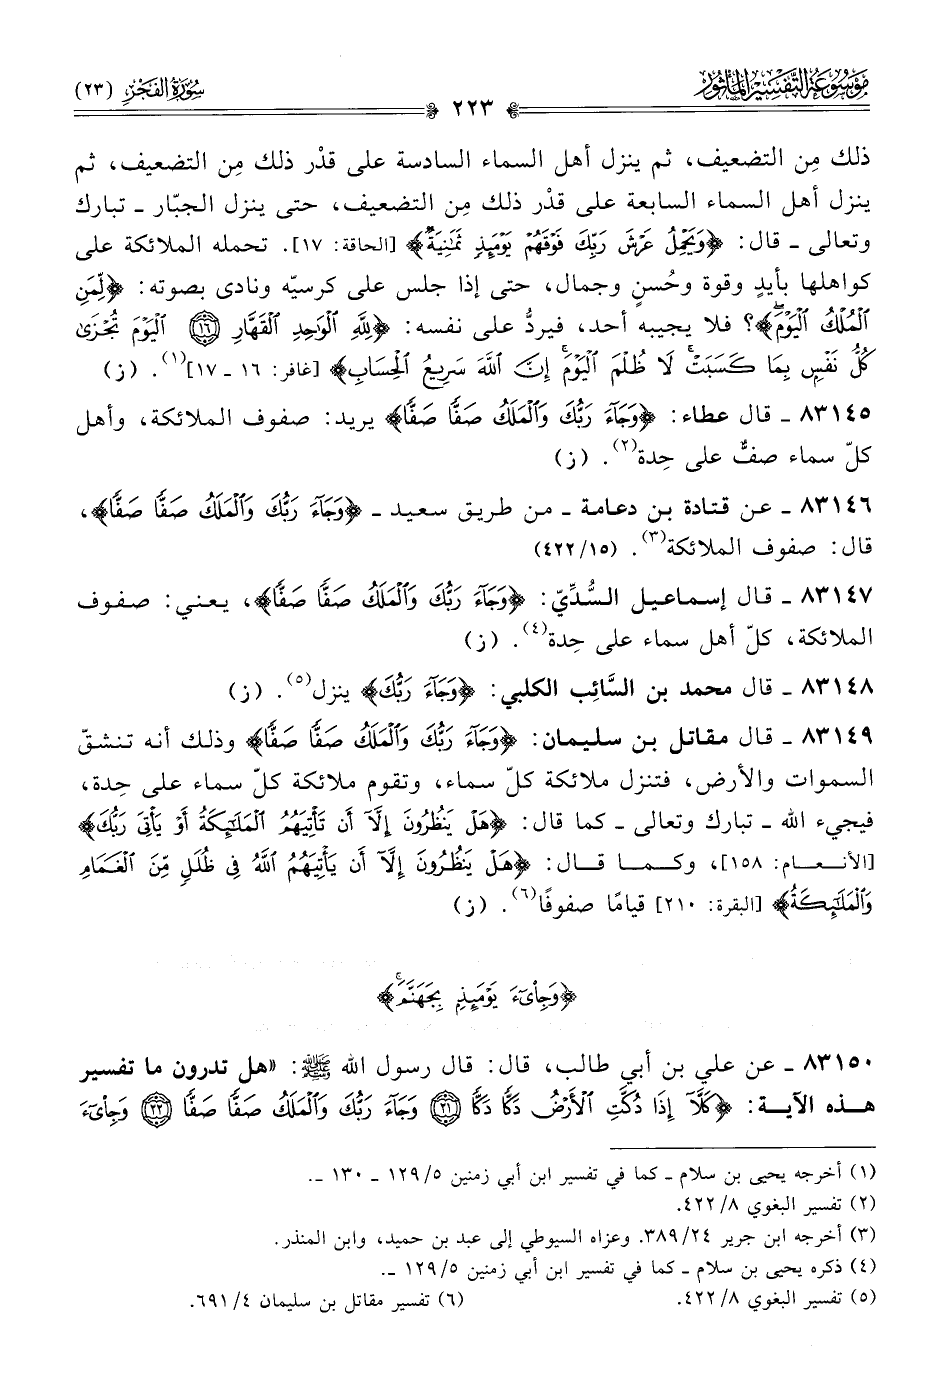 موسوعة التفسير المأثور
سورة الفجر (٢٣)
٢٢٣
ذلك مِن التضعيف، ثم ينزل أهل السماء السادسة على قدْر ذلك مِن التضعيف، ثم
ينزل أهل السماء السابعة على قدْر ذلك مِن التضعيف، حتى ينزل الجبّار ـ تبارك
وتعالى ـ قال: ﴿وَيَحْمِلُ عَرْشَ رَبِّكَ فَوْقَهُمْ يَوْمَئِذٍ ثَمَٰنِيَةٌ﴾ [الحاقة: ١٧]. تحمله الملائكة على
كواهلها بأيدٍ وقوة وحُسنٍ وجمال، حتى إذا جلس على كرسيّه ونادى بصوته: ﴿لِّمَنِ
ٱلْمُلْكُ ٱلْيَوْمَۖ﴾؟ فلا يجيبه أحد، فيردُّ على نفسه: ﴿لِلَّهِ ٱلْوَٰحِدِ ٱلْقَهَّارِ ۝١٦ ٱلْيَوْمَ تُجْزَىٰ
كُلُّ نَفْسٍۭ بِمَا كَسَبَتْۚ لَا ظُلْمَ ٱلْيَوْمَۚ إِنَّ ٱللَّهَ سَرِيعُ ٱلْحِسَابِ﴾ [غافر: ١٦ ـ ١٧](١). (ز)
٨٣١٤٥ ـ قال عطاء: ﴿وَجَآءَ رَبُّكَ وَٱلْمَلَكُ صَفًّا صَفًّا﴾ يريد: صفوف الملائكة، وأهل
كلّ سماء صفٌّ على حِدة(٢). (ز)
٨٣١٤٦ ـ عن قتادة بن دعامة ـ من طريق سعيد ـ ﴿وَجَآءَ رَبُّكَ وَٱلْمَلَكُ صَفًّا صَفًّا﴾،
قال: صفوف الملائكة(٣). (٤٢٢/١٥)
٨٣١٤٧ ـ قال إسماعيل السُّدِّيّ: ﴿وَجَآءَ رَبُّكَ وَٱلْمَلَكُ صَفًّا صَفًّا﴾، يعني: صفوف
الملائكة، كلّ أهل سماء على حِدة(٤). (ز)
٨٣١٤٨ ـ قال محمد بن السَّائِب الكلبي: ﴿وَجَآءَ رَبُّكَ﴾ ينزل(٥). (ز)
٨٣١٤٩ ـ قال مقاتل بن سليمان: ﴿وَجَآءَ رَبُّكَ وَٱلْمَلَكُ صَفًّا صَفًّا﴾ وذلك أنه تنشقّ
السموات والأرض، فتنزل ملائكة كلّ سماء، وتقوم ملائكة كلّ سماء على حِدة،
فيجيء الله ـ تبارك وتعالى ـ كما قال: ﴿هَلْ يَنظُرُونَ إِلَّآ أَن تَأْتِيَهُمُ ٱلْمَلَٰٓئِكَةُ أَوْ يَأْتِىَ رَبُّكَ﴾
[الأنعام: ١٥٨]، وكما قال: ﴿هَلْ يَنظُرُونَ إِلَّآ أَن يَأْتِيَهُمُ ٱللَّهُ فِى ظُلَلٍ مِّنَ ٱلْغَمَامِ
وَٱلْمَلَٰٓئِكَةُ﴾ [البقرة: ٢١٠] قيامًا صفوفًا(٦). (ز)
﴿وَجِا۟ىٓءَ يَوْمَئِذٍۭ بِجَهَنَّمَۚ﴾
٨٣١٥٠ ـ عن علي بن أبي طالب، قال: قال رسول الله ﷺ: «هل تدرون ما تفسير
هذه الآية: ﴿كَلَّآ إِذَا دُكَّتِ ٱلْأَرْضُ دَكًّا دَكًّا ۝٢١ وَجَآءَ رَبُّكَ وَٱلْمَلَكُ صَفًّا صَفًّا ۝٢٢ وَجِا۟ىٓءَ
(١) أخرجه يحيى بن سلام ـ كما في تفسير ابن أبي زمنين ١٢٩/٥ ـ ١٣٠ ـ.
(٢) تفسير البغوي ٤٢٢/٨.
(٣) أخرجه ابن جرير ٣٨٩/٢٤. وعزاه السيوطي إلى عبد بن حميد، وابن المنذر.
(٤) ذكره يحيى بن سلام ـ كما في تفسير ابن أبي زمنين ١٢٩/٥ ـ.
(٥) تفسير البغوي ٤٢٢/٨. (٦) تفسير مقاتل بن سليمان ٦٩١/٤.